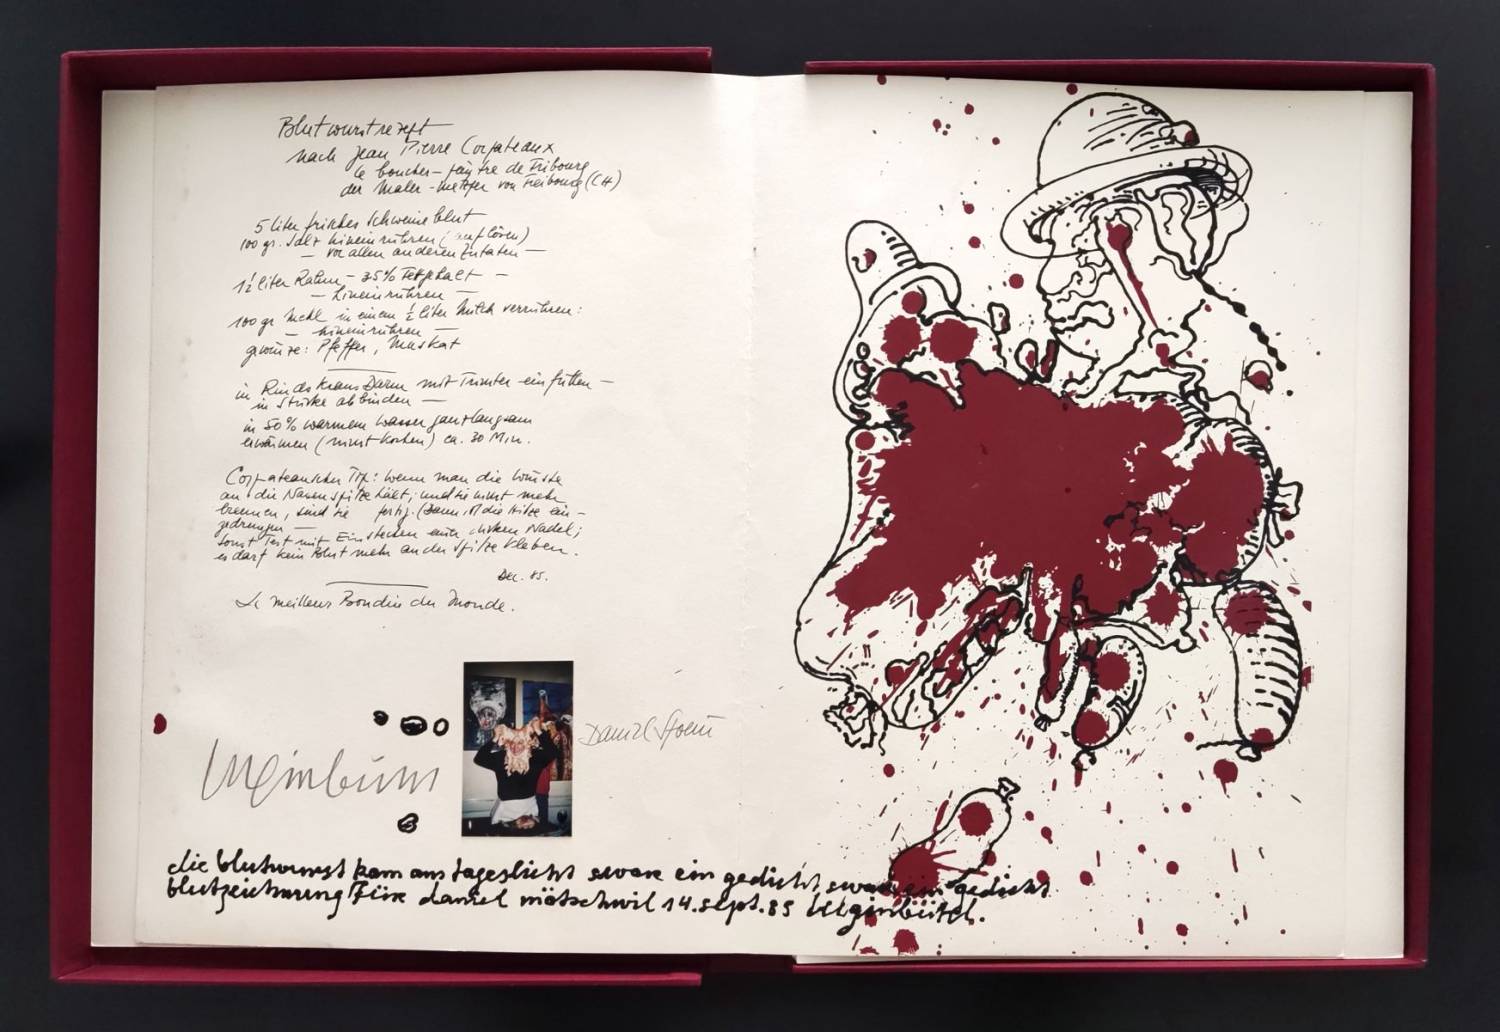 Blutwurstrezept
nach Jean Pierre Corpateaux
le boucher-peintre de Fribourg
der Maler-Metzger von Freibourg (CH)
5 liter frisches Schweineblut
100 gr. Salz hineinrühren (auflösen)
— vor allen anderen Zutaten —
1½ liter Rahm - 35% Fettgehalt —
— hineinrühren —
100 gr Mehl in einem ½ liter Milch verrühren:
— hineinrühren —
gewürze: Pfeffer, Muskat
in Rinds Kranz Darm mit Trichter einfüllen —
in Stücke abbinden —
in 50% warmem wasser ganz langsam
erwärmen (nicht kochen) ca. 30 Min.
Corpateauscher Tip: wenn man die Würste
an die Nasenspitze hält, und sie nicht mehr
brennen, sind sie fertig. (Dann ist die Hitze ein-
gedrungen —
sonst Test mit Einstechen einer dicken Nadel;
es darf kein Blut mehr an der Spitze kleben.
Dez. 85.
Le meilleur Boudin du Monde.
die blutwurst kam ans tageslicht swar ein gedicht swar ein gedicht
blutzeichnung für daniel mötschwil 14. sept. 85